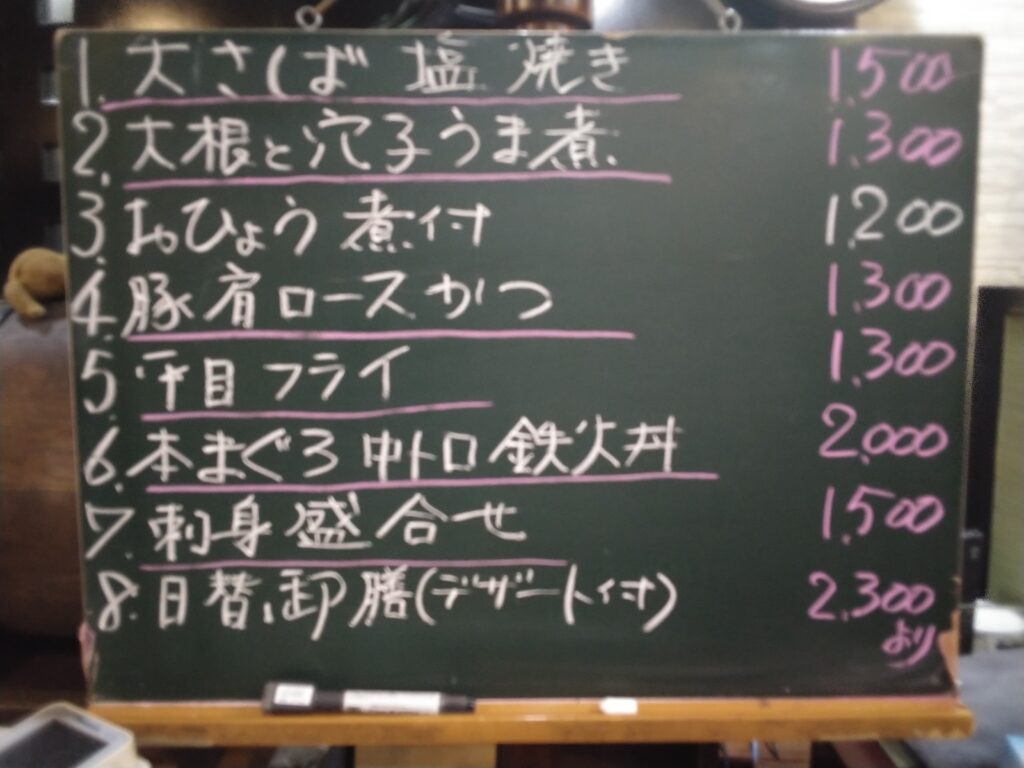 1. 大さば 塩焼き 1,500
2. 大根と穴子うま煮 1,300
3. おひょう 煮付 1,200
4. 豚肩ロースかつ 1,300
5. 平目フライ 1,300
6. 本まぐろ中トロ鉄火丼 2,000
7. 刺身盛合せ 1,500
8. 日替り御膳(デザート付) 2,300
より